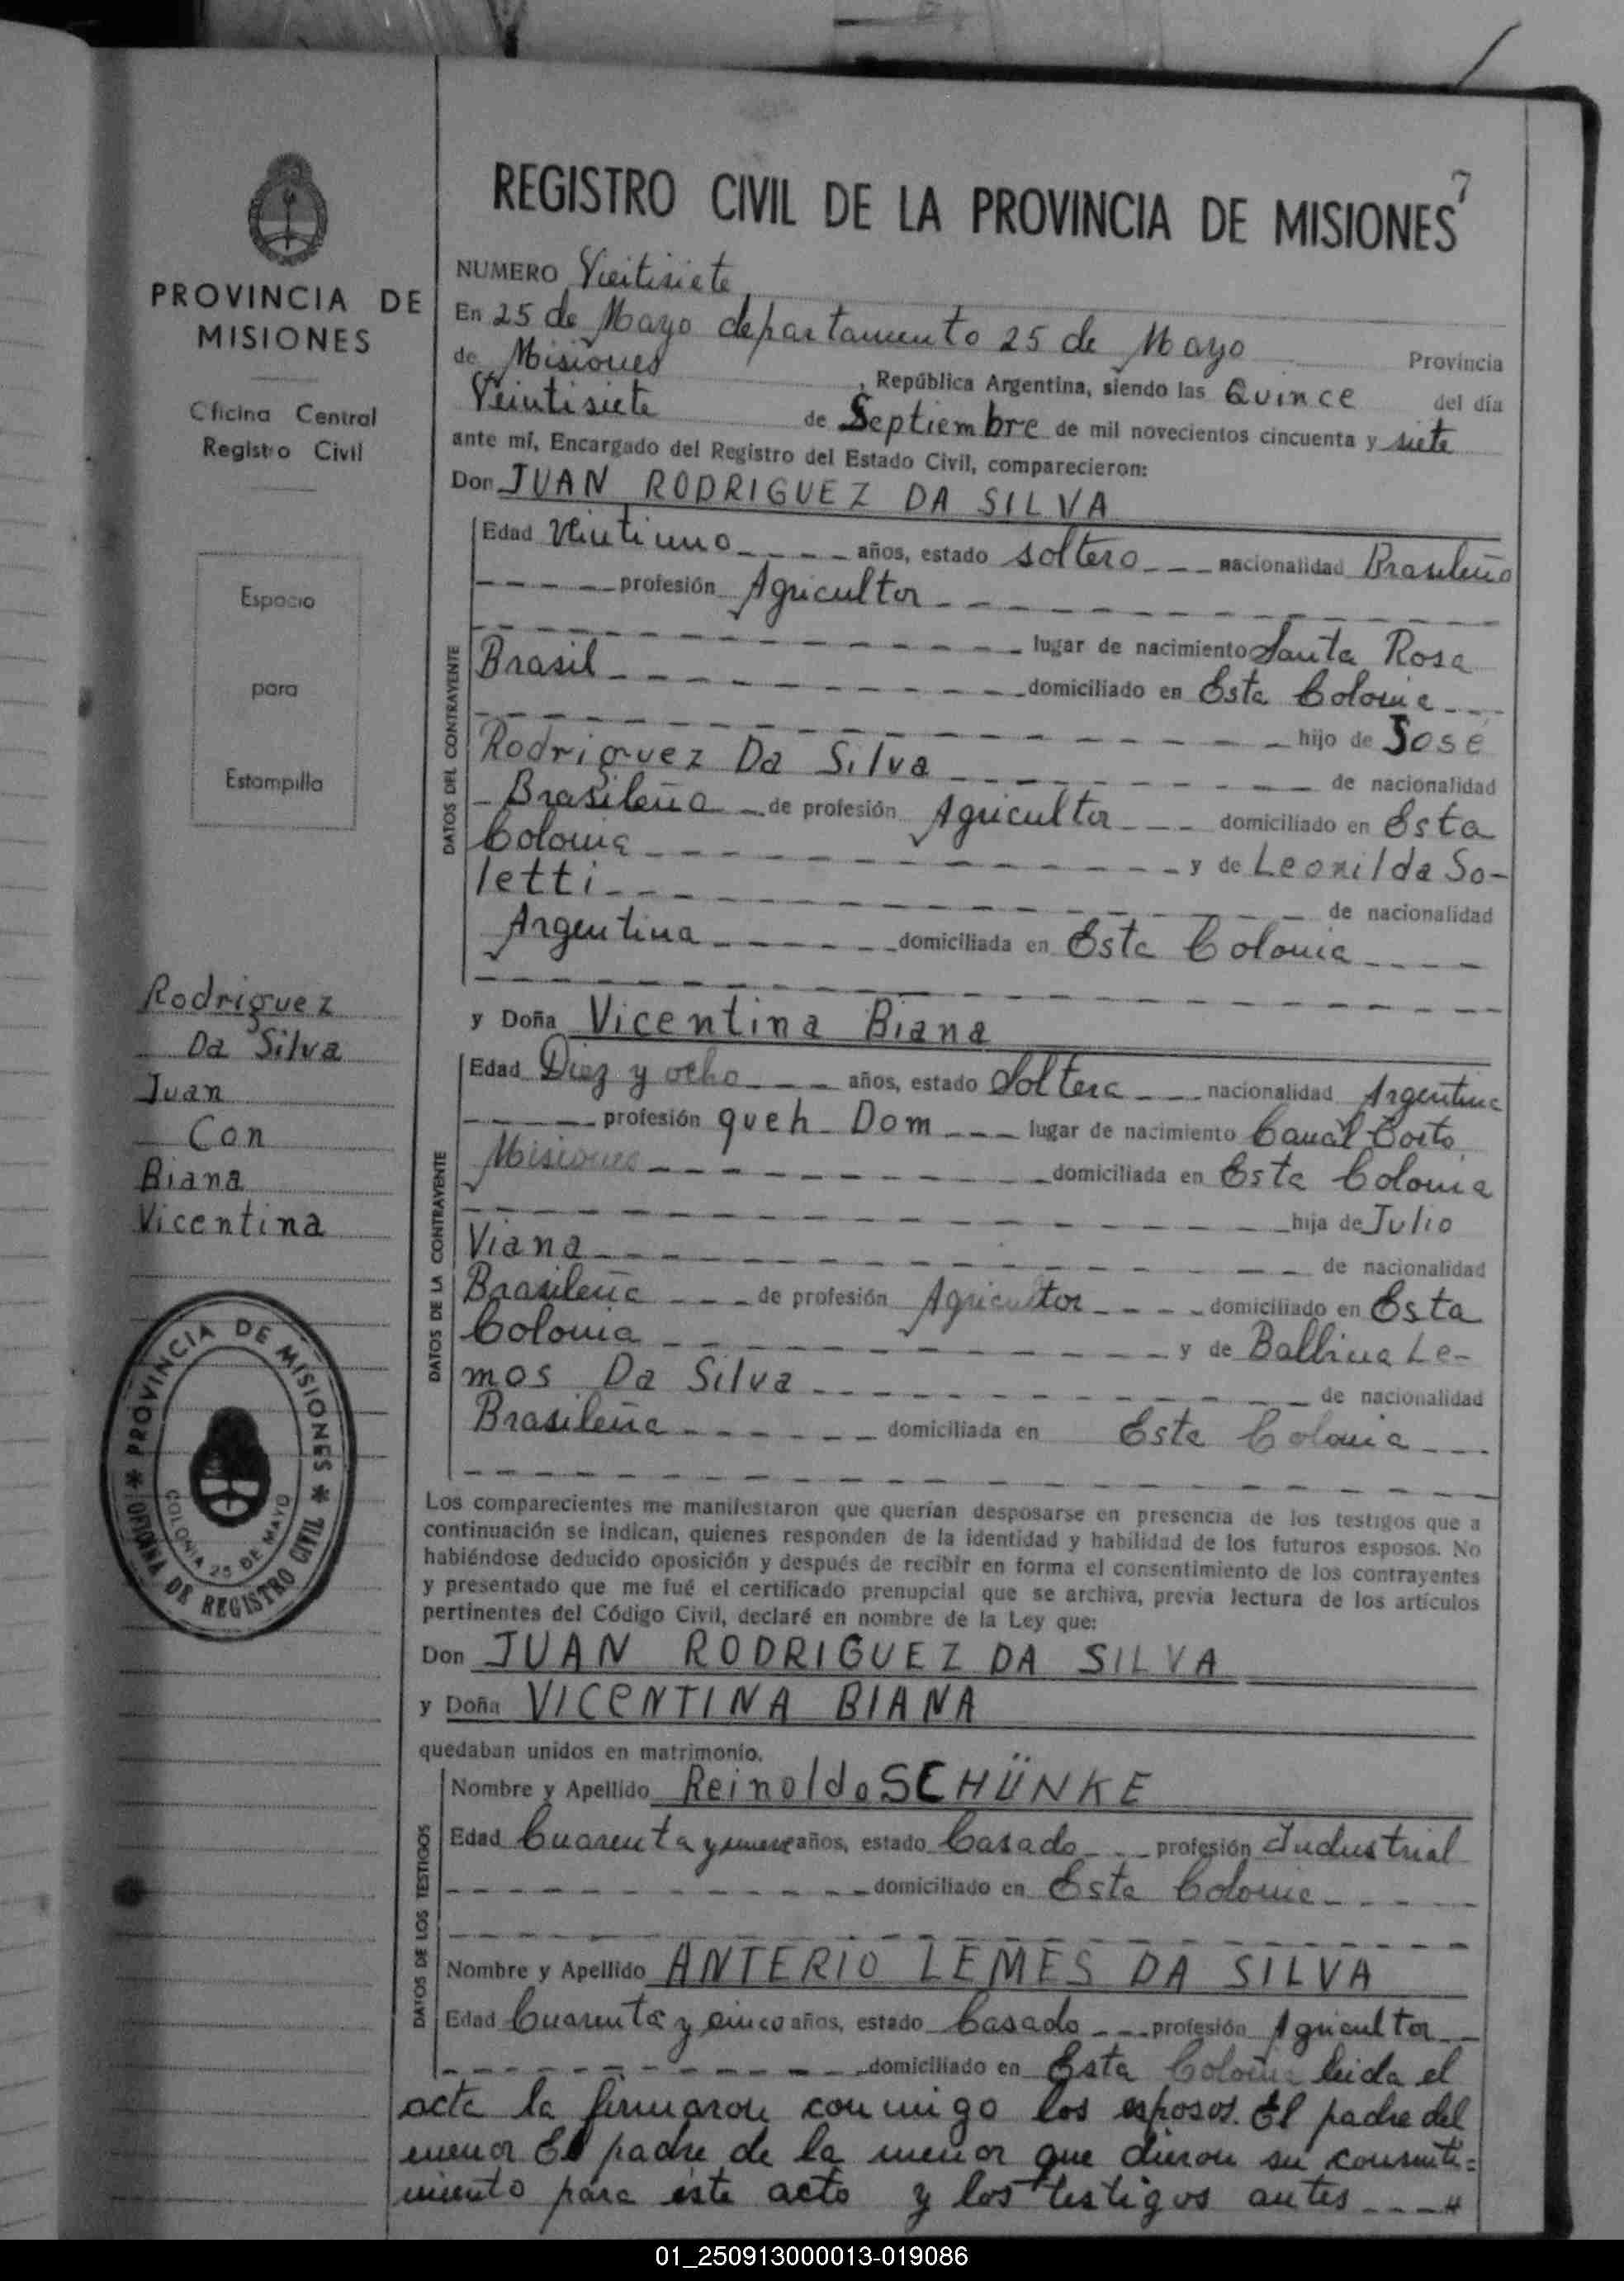 7
REGISTRO CIVIL DE LA PROVINCIA DE MISIONES
PROVINCIA DE
MISIONES
Oficina Central
Registro Civil
Espacio
para
Estampilla
Rodriguez
Da Silva
Juan
Con
Biana
Vicentina
PROVINCIA DE MISIONES
OFICINA DE REGISTRO CIVIL
COLONIA 25 DE MAYO
NUMERO Vieitisiete
En 25 de Mayo departamento 25 de Mayo Provincia
de Misiones, República Argentina, siendo las Quince del día
Veintisiete de Septiembre de mil novecientos cincuenta y siete
ante mí, Encargado del Registro del Estado Civil, comparecieron:
Don JUAN RODRIGUEZ DA SILVA
DATOS DEL CONTRAYENTE
Edad Veintiuno años, estado soltero nacionalidad Brasileño
profesión Agricultor
lugar de nacimiento Santa Rosa
Brasil domiciliado en Esta Colonia
hijo de José
Rodriguez Da Silva de nacionalidad
Brasileña de profesión Agricultor domiciliado en Esta
Colonia y de Leonilda So-
letti de nacionalidad
Argentina domiciliada en Esta Colonia
y Doña Vicentina Biana
DATOS DE LA CONTRAYENTE
Edad Diez y ocho años, estado Soltera nacionalidad Argentina
profesión queh. Dom lugar de nacimiento Canal Torto
Misiones domiciliada en Esta Colonia
hija de Julio
Viana de nacionalidad
Brasileña de profesión Agricultor domiciliado en Esta
Colonia y de Balbina Le-
mos Da Silva de nacionalidad
Brasileña domiciliada en Esta Colonia
Los comparecientes me manifestaron que querían desposarse en presencia de los testigos que a
continuación se indican, quienes responden de la identidad y habilidad de los futuros esposos. No
habiéndose deducido oposición y después de recibir en forma el consentimiento de los contrayentes
y presentado que me fué el certificado prenupcial que se archiva, previa lectura de los artículos
pertinentes del Código Civil, declaré en nombre de la Ley que:
Don JUAN RODRIGUEZ DA SILVA
y Doña VICENTINA BIANA
quedaban unidos en matrimonio.
DATOS DE LOS TESTIGOS
Nombre y Apellido Reinoldo SCHÜNKE
Edad Cuarenta y nueve años, estado Casado profesión Industrial
domiciliado en Esta Colonia
Nombre y Apellido ANTERIO LEMES DA SILVA
Edad Cuarenta y cinco años, estado Casado profesión Agricultor
domiciliado en Esta Colonia leida el
acta la firmaron conmigo los esposos. El padre del
menor El padre de la menor que dieron su consenti=
miento para este acto y los testigos antes
01_250913000013-019086